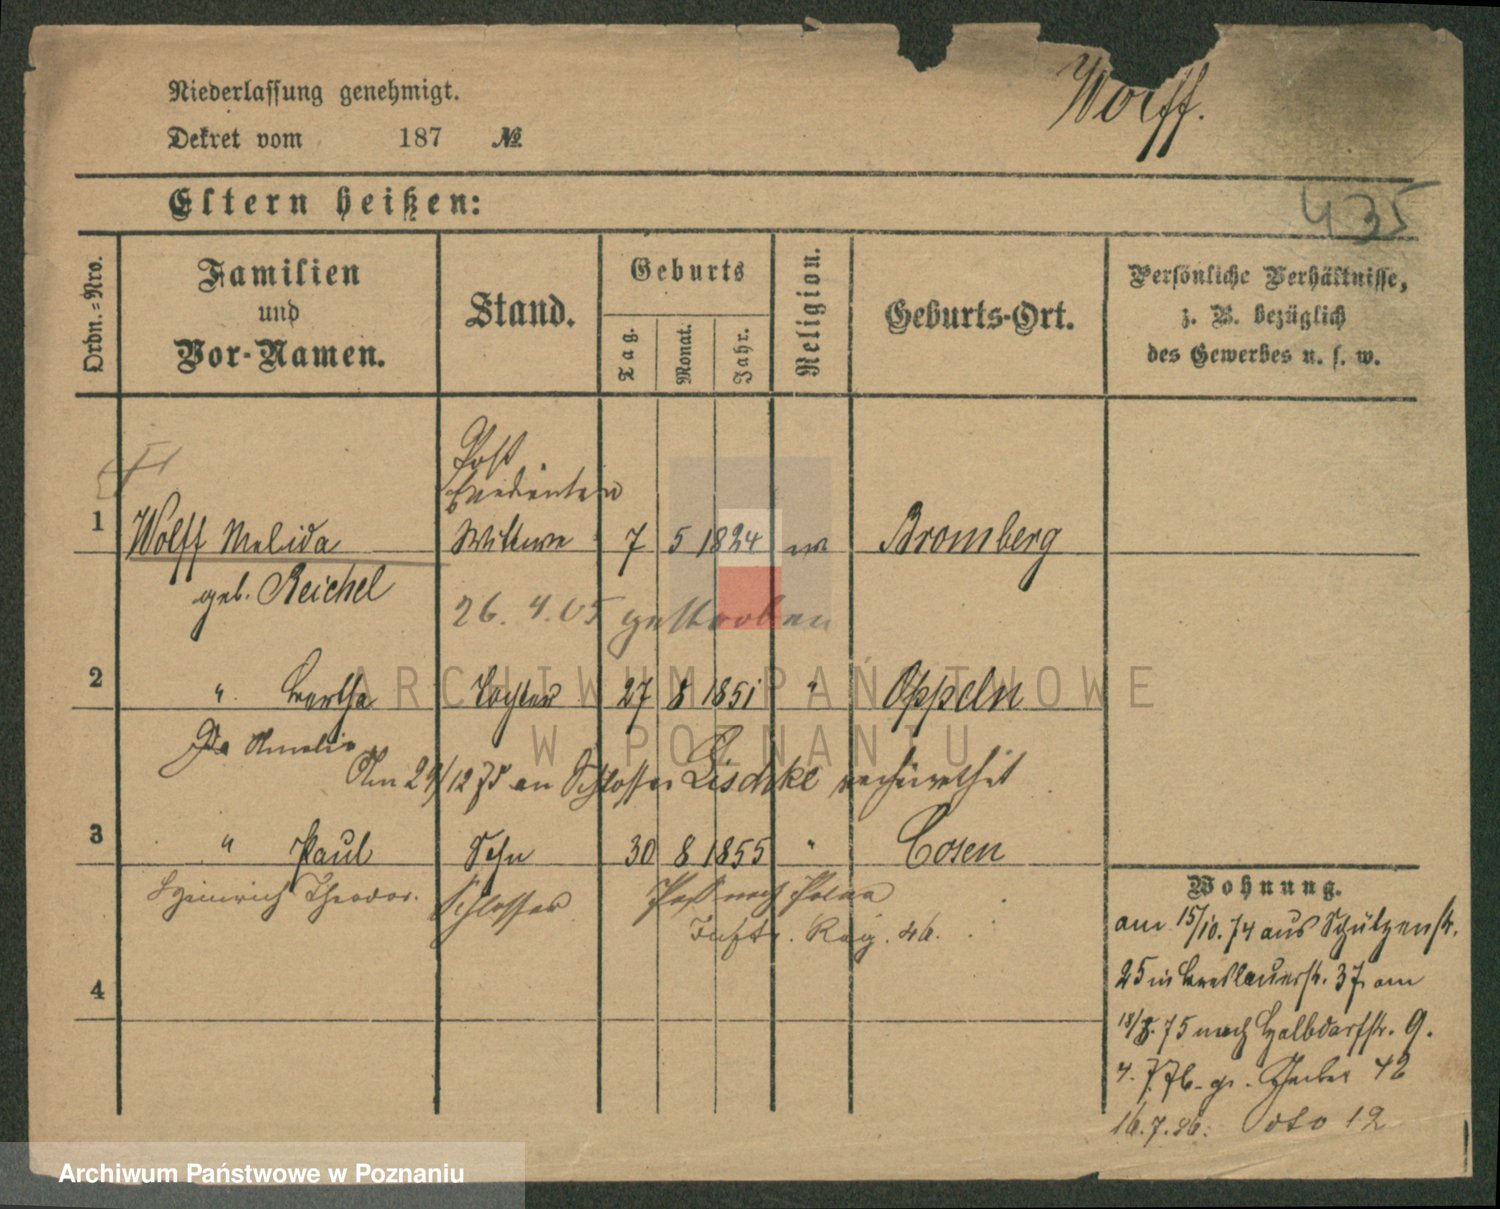 Wolff.
Niederlassung genehmigt.
Dekret vom 187 №
435
Eltern heißen:
Ordn.-Nro.
Familien und Vor-Namen.
Stand.
Geburts
Tag.
Monat.
Jahr.
Religion.
Geburts-Ort.
Persönliche Verhältnisse,
z. B. bezüglich
des Gewerbes u. s. w.
Post
1 Wolff Malida Wittwe 7 5 1824 ev Bromberg
geb. Reichel
26. 4. 05 gestorben
ARCHIWUM PAŃSTWOWE
W POZNANIU
2 " Bertha Tochter 27 8 1851 " Oppeln
Amalie
Am 29/12 75 an Schlosser Lischke verheirathet
3 " Paul Sohn 30 8 1855 " Cosen
Heinrich Theodor. Schlosser Paß nach Polen
Inftr. Reg. 46.
4
Wohnung.
am 15/10. 74 aus Schützenstr.
25 in Breslauerstr. 37. am
75 nach Halbdorfstr. 9.
4. 7. 76. gr. Gerber 42
16. 7. 86. dto 12
Archiwum Państwowe w Poznaniu